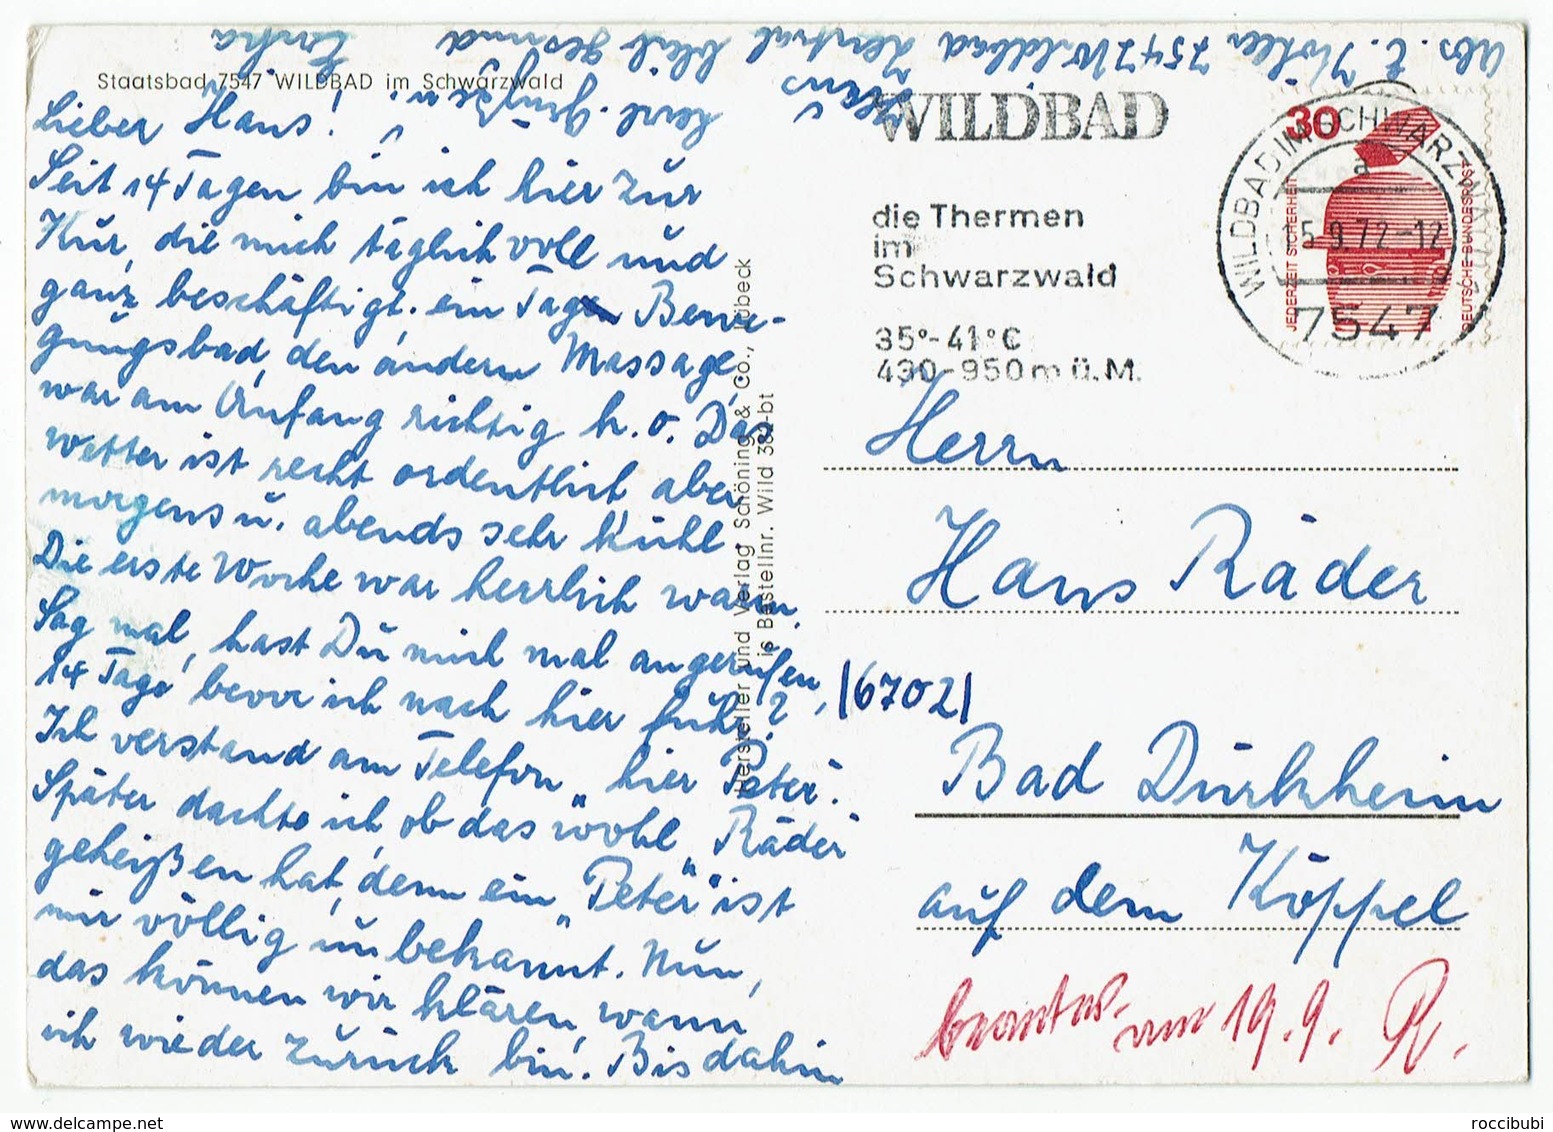 Staatsbad 7547 WILDBAD im Schwarzwald
Lieber Hans!
Seit 14 Tagen bin ich hier zur
Kur, die mich täglich voll und
ganz beschäftigt. ein Tag Bewe-
gungsbad, den andern Massage,
war am Anfang richtig k.o. Das
Wetter ist recht ordentlich aber
morgens u. abends sehr kühl
Die erste Woche war herrlich warm.
Sag mal, hast Du mich mal angerufen,
14 Tage bevor ich nach hier fuhr?
Ich verstand am Telefon „hier Peter".
Später dachte ich, ob das wohl „Räder"
geheißen hat, denn ein „Peter" ist
mir völlig unbekannt. Nun,
das können wir klären, wann
ich wieder zurück bin. Bis dahin
herzl. Grüße u.
bleib gesund
Abs. E. Köhler 7547 Wildbad Zentral
Hersteller und Verlag Schöning & Co., Lübeck
is Bestellnr. Wild 382-bt
WILDBAD
die Thermen
im
Schwarzwald
35°-41°C
430-950 m ü.M.
30
JEDERZEIT SICHERHEIT
DEUTSCHE BUNDESPOST
WILDBAD IM SCHWARZWALD
a
15.9.72-12
7547
Herrn
Hans Räder
|6702|
Bad Dürkheim
auf dem Köppel
beantw.
am 19.9. R.
roccibubi